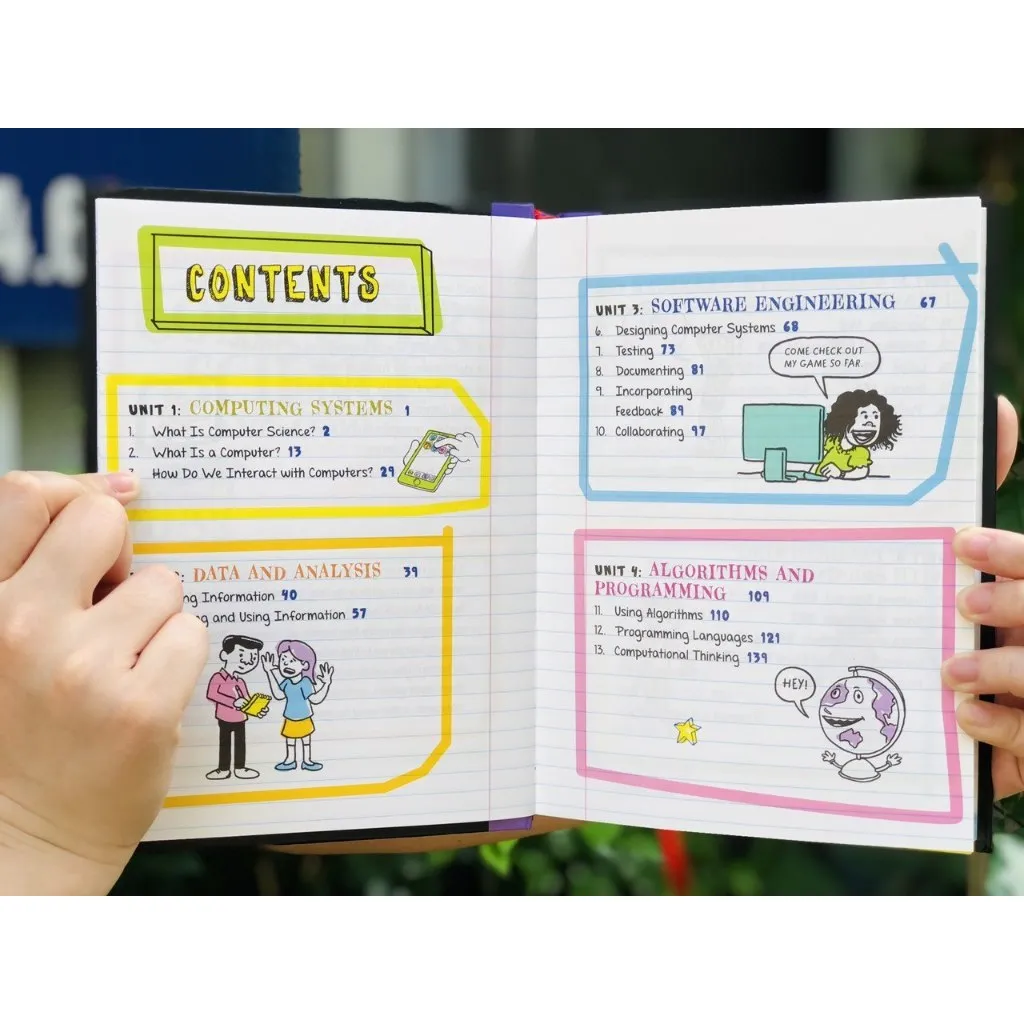 4.6
CONTENTS
UNIT 1: COMPUTING SYSTEMS 1
1. What Is Computer Science? 2
2. What Is a Computer? 13
How Do We Interact with Computers? 29
: DATA AND ANALYSIS 39
Information 40
and Using Information 57
UNIT 3: SOFTWARE ENGINEERING 67
6. Designing Computer Systems 68
7. Testing 73
8. Documenting 81
9. Incorporating
Feedback 89
10. Collaborating 97
COME CHECK OUT
MY GAME SO FAR.
UNIT 4: ALGORITHMS AND
PROGRAMMING 109
11. Using Algorithms 110
12. Programming Languages 121
13. Computational Thinking 139
HEY!